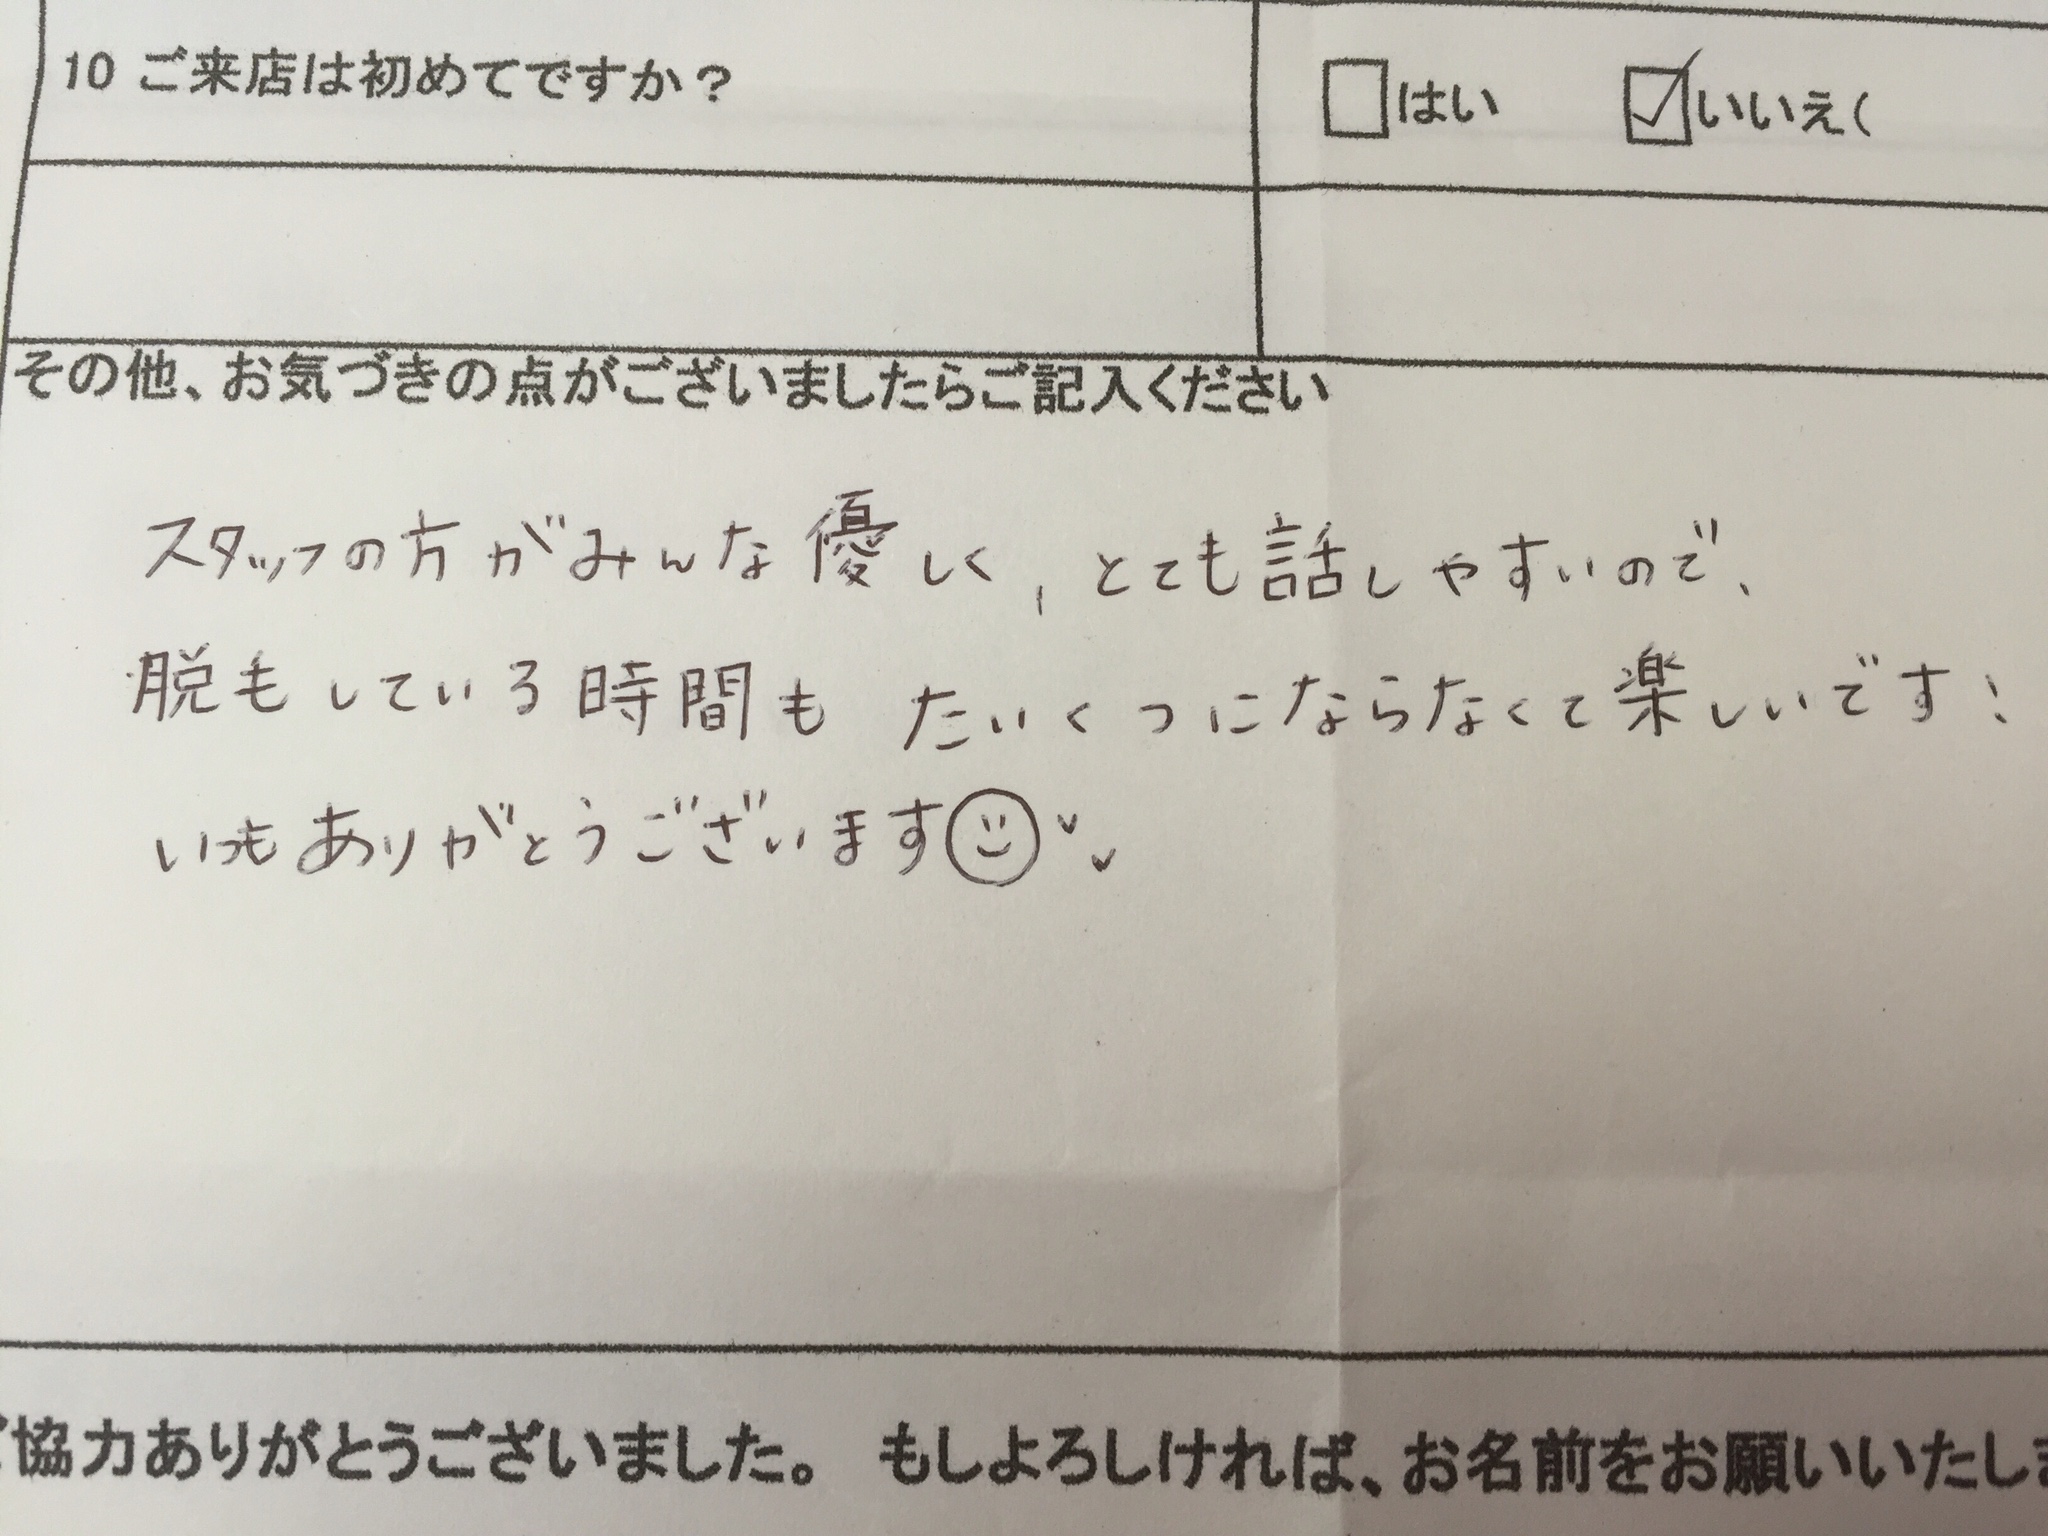 10 ご来店は初めてですか？
□はい ☑いいえ(
その他、お気づきの点がございましたらご記入ください
スタッフの方がみんな優しく、とても話しやすいので、
脱もしている時間も たいくつにならなくて楽しいです!
いつもありがとうございます
ご協力ありがとうございました。 もしよろしければ、お名前をお願いいたしま